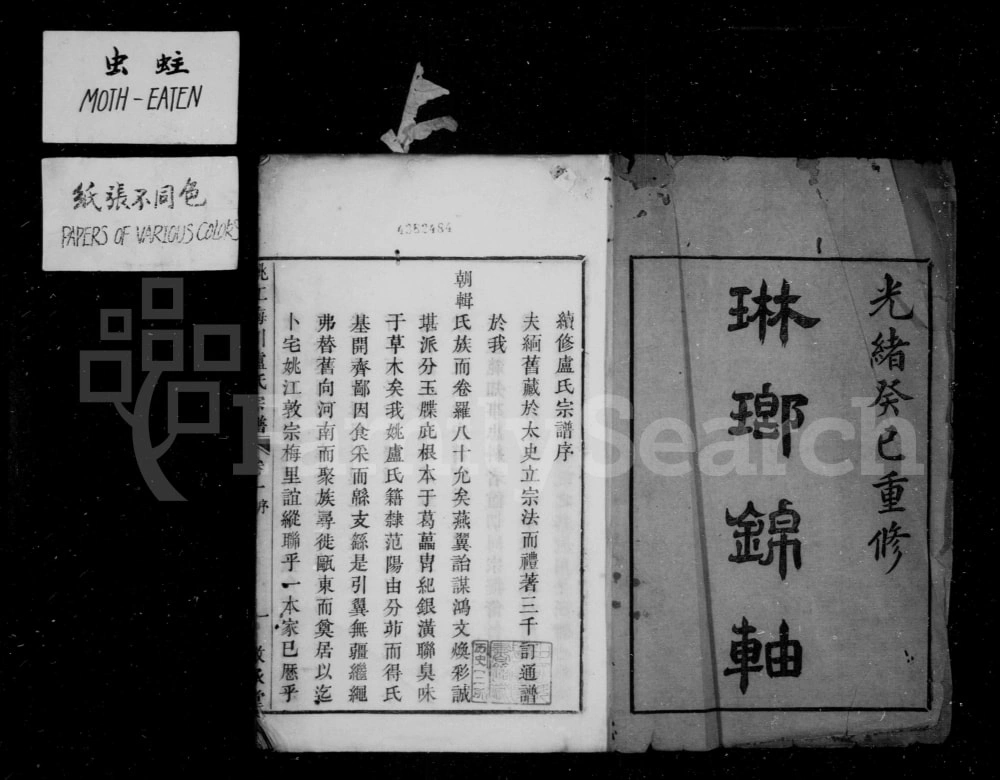 虫 蛀
MOTH - EATEN
紙張不同色
PAPERS OF VARIOUS COLORS
光緒癸巳重修
琳瑯錦軸
4352484
續修盧氏宗譜序
夫緬舊藏於太史立宗法而禮著三千訂通譜
於我
朝輯氏族而卷羅八十允矣燕翼詒謀鴻文煥彩誠
堪派分玉牒庇根本于葛藟冑紀銀潢聯臭味
于草木矣我姚盧氏籍隸范陽由分茆而得氏
基開齊鄙因食采而緜支繇是引翼無疆繼繩
弗替舊向河南而聚族尋徙甌東而奠居以迄
卜宅姚江敦宗梅里誼縱聯乎一本家已歷乎
盧氏宗譜 序 一
FamilySearch